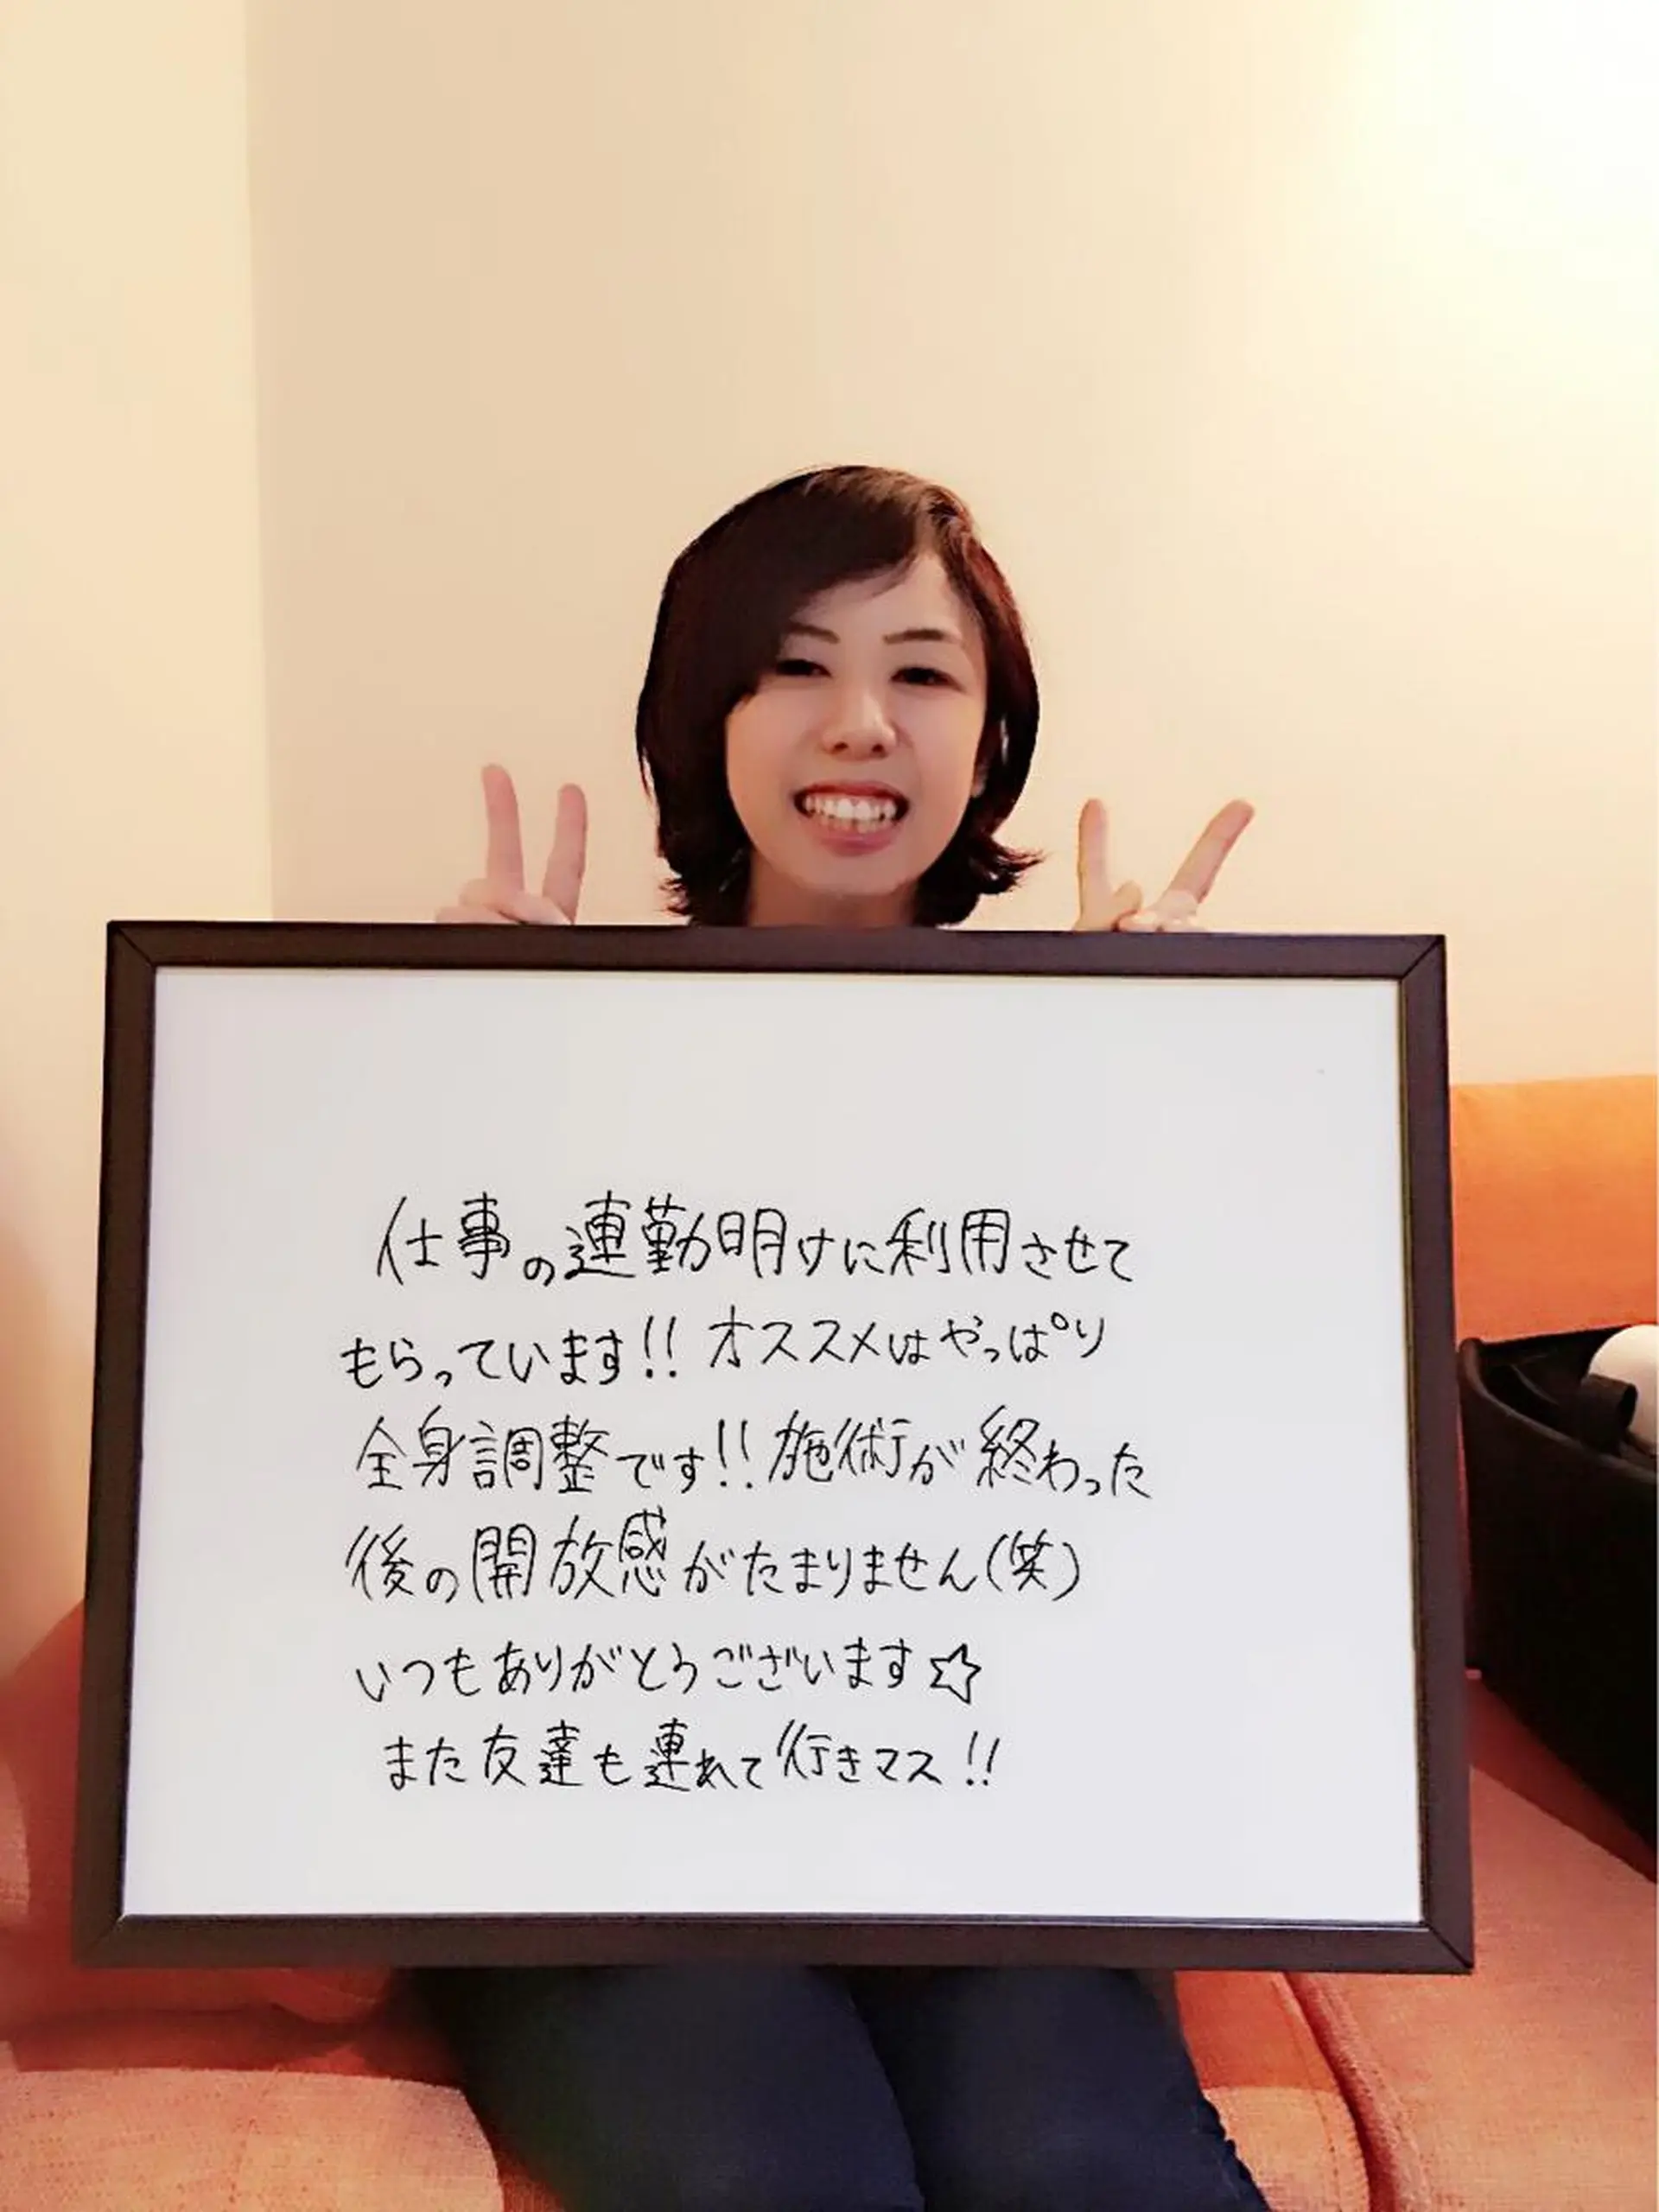 仕事の連勤明けに利用させて
もらっています!! オススメはやっぱり
全身調整です!! 施術が終わった
後の開放感がたまりません(笑)
いつもありがとうございます☆
また友達も連れて行きマス!!